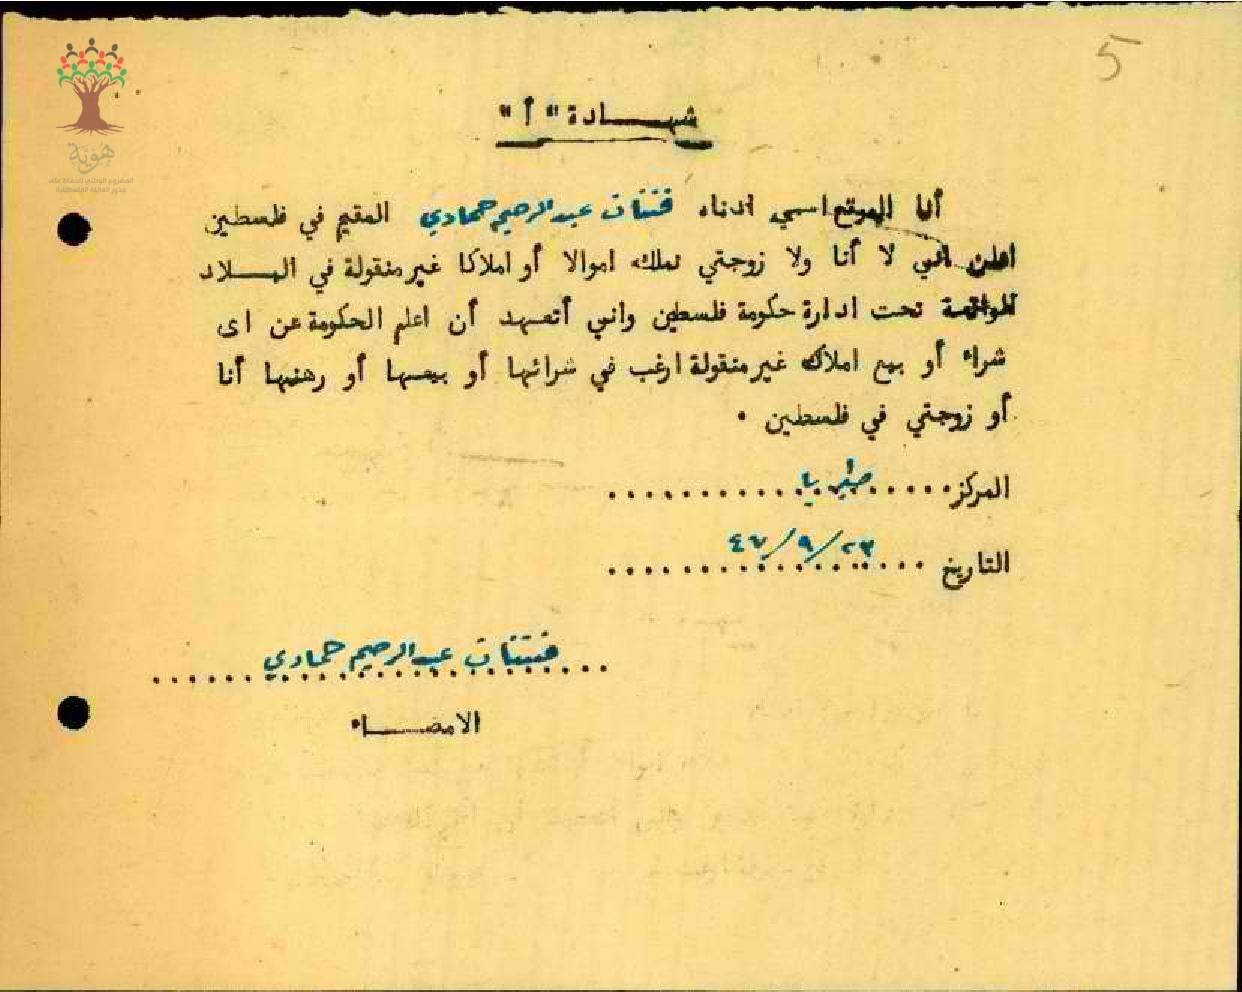 5
هوية
المشروع الوطني للحفاظ على
جذور العائلة الفلسطينية
شهـــادة "أ"
أنا الموقع اسمي ادناه فتنات عبد الرحيم حمادي المقيم في فلسطين
اعلن اني لا أنا ولا زوجتي نملك اموالا أو املاكا غير منقولة في البـلاد
الواقعـة تحت ادارة حكومة فلسطين واني أتعهد أن اعلم الحكومة عن اى
شراء أو بيع املاك غير منقولة ارغب في شرائها أو بيعها أو رهنها أنا
أو زوجتي في فلسطين .
المركز..... طبريا ..........
التاريخ ..... ٢٣/٩/٤٧ ..........
فتنات عبد الرحيم حمادي
الامضـــاء